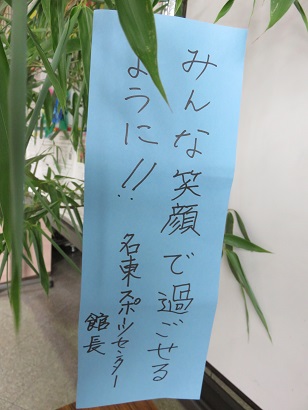 みんな笑顔で過ごせる
ように!!
名東スポーツセンター
館長